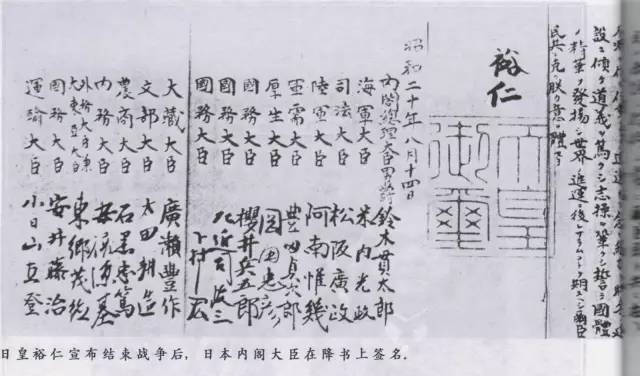 設ニ傾ケ道義ヲ篤クシ志操ヲ鞏クシ誓テ國體
ノ精華ヲ發揚シ世界ノ進運ニ後レサラムコトヲ期スヘシ爾臣
民其レ克ク朕カ意ヲ體セヨ
裕仁
天皇御璽
昭和二十年八月十四日
内閣總理大臣男爵 鈴木貫太郎
海軍大臣 米内光政
司法大臣 松阪廣政
陸軍大臣 阿南惟幾
軍需大臣 豊田貞次郎
厚生大臣 岡田忠彦
國務大臣 櫻井兵五郎
國務大臣 左近司政三
國務大臣 下村宏
大藏大臣 廣瀬豊作
文部大臣 太田耕造
農商大臣 石黒忠篤
内務大臣 安倍源基
外務大臣兼
大東亞大臣 東郷茂徳
國務大臣 安井藤治
運輸大臣 小日山直登
日皇裕仁宣布结束战争后，日本内阁大臣在降书上签名。